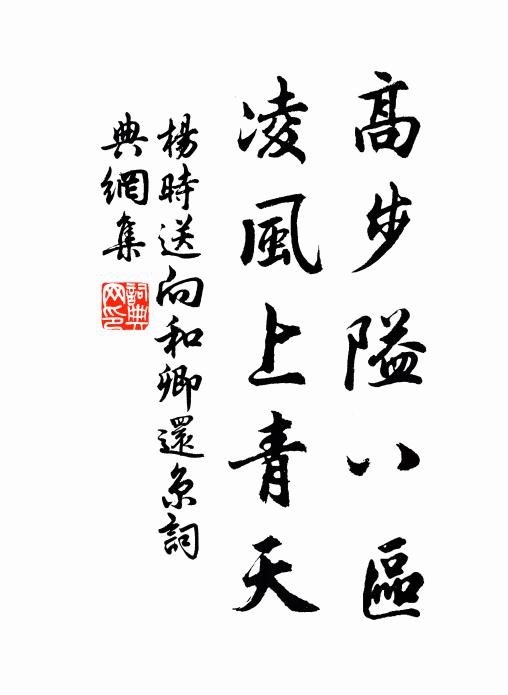 高步隘八區
凌風上青天
楊時送向和卿還京詞
典網集
詞典網印